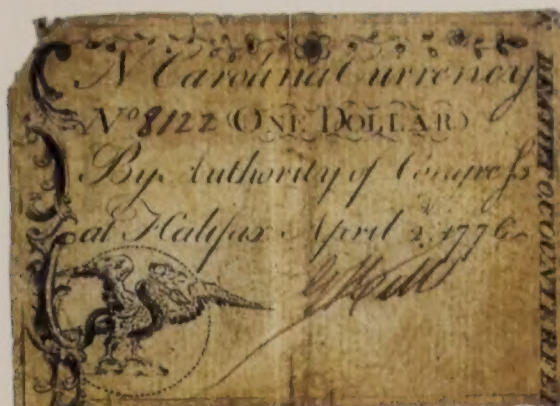 N Carolina Currency
No 8122 (ONE DOLLAR)
By Authority of Congress
at Halifax April 2, 1776